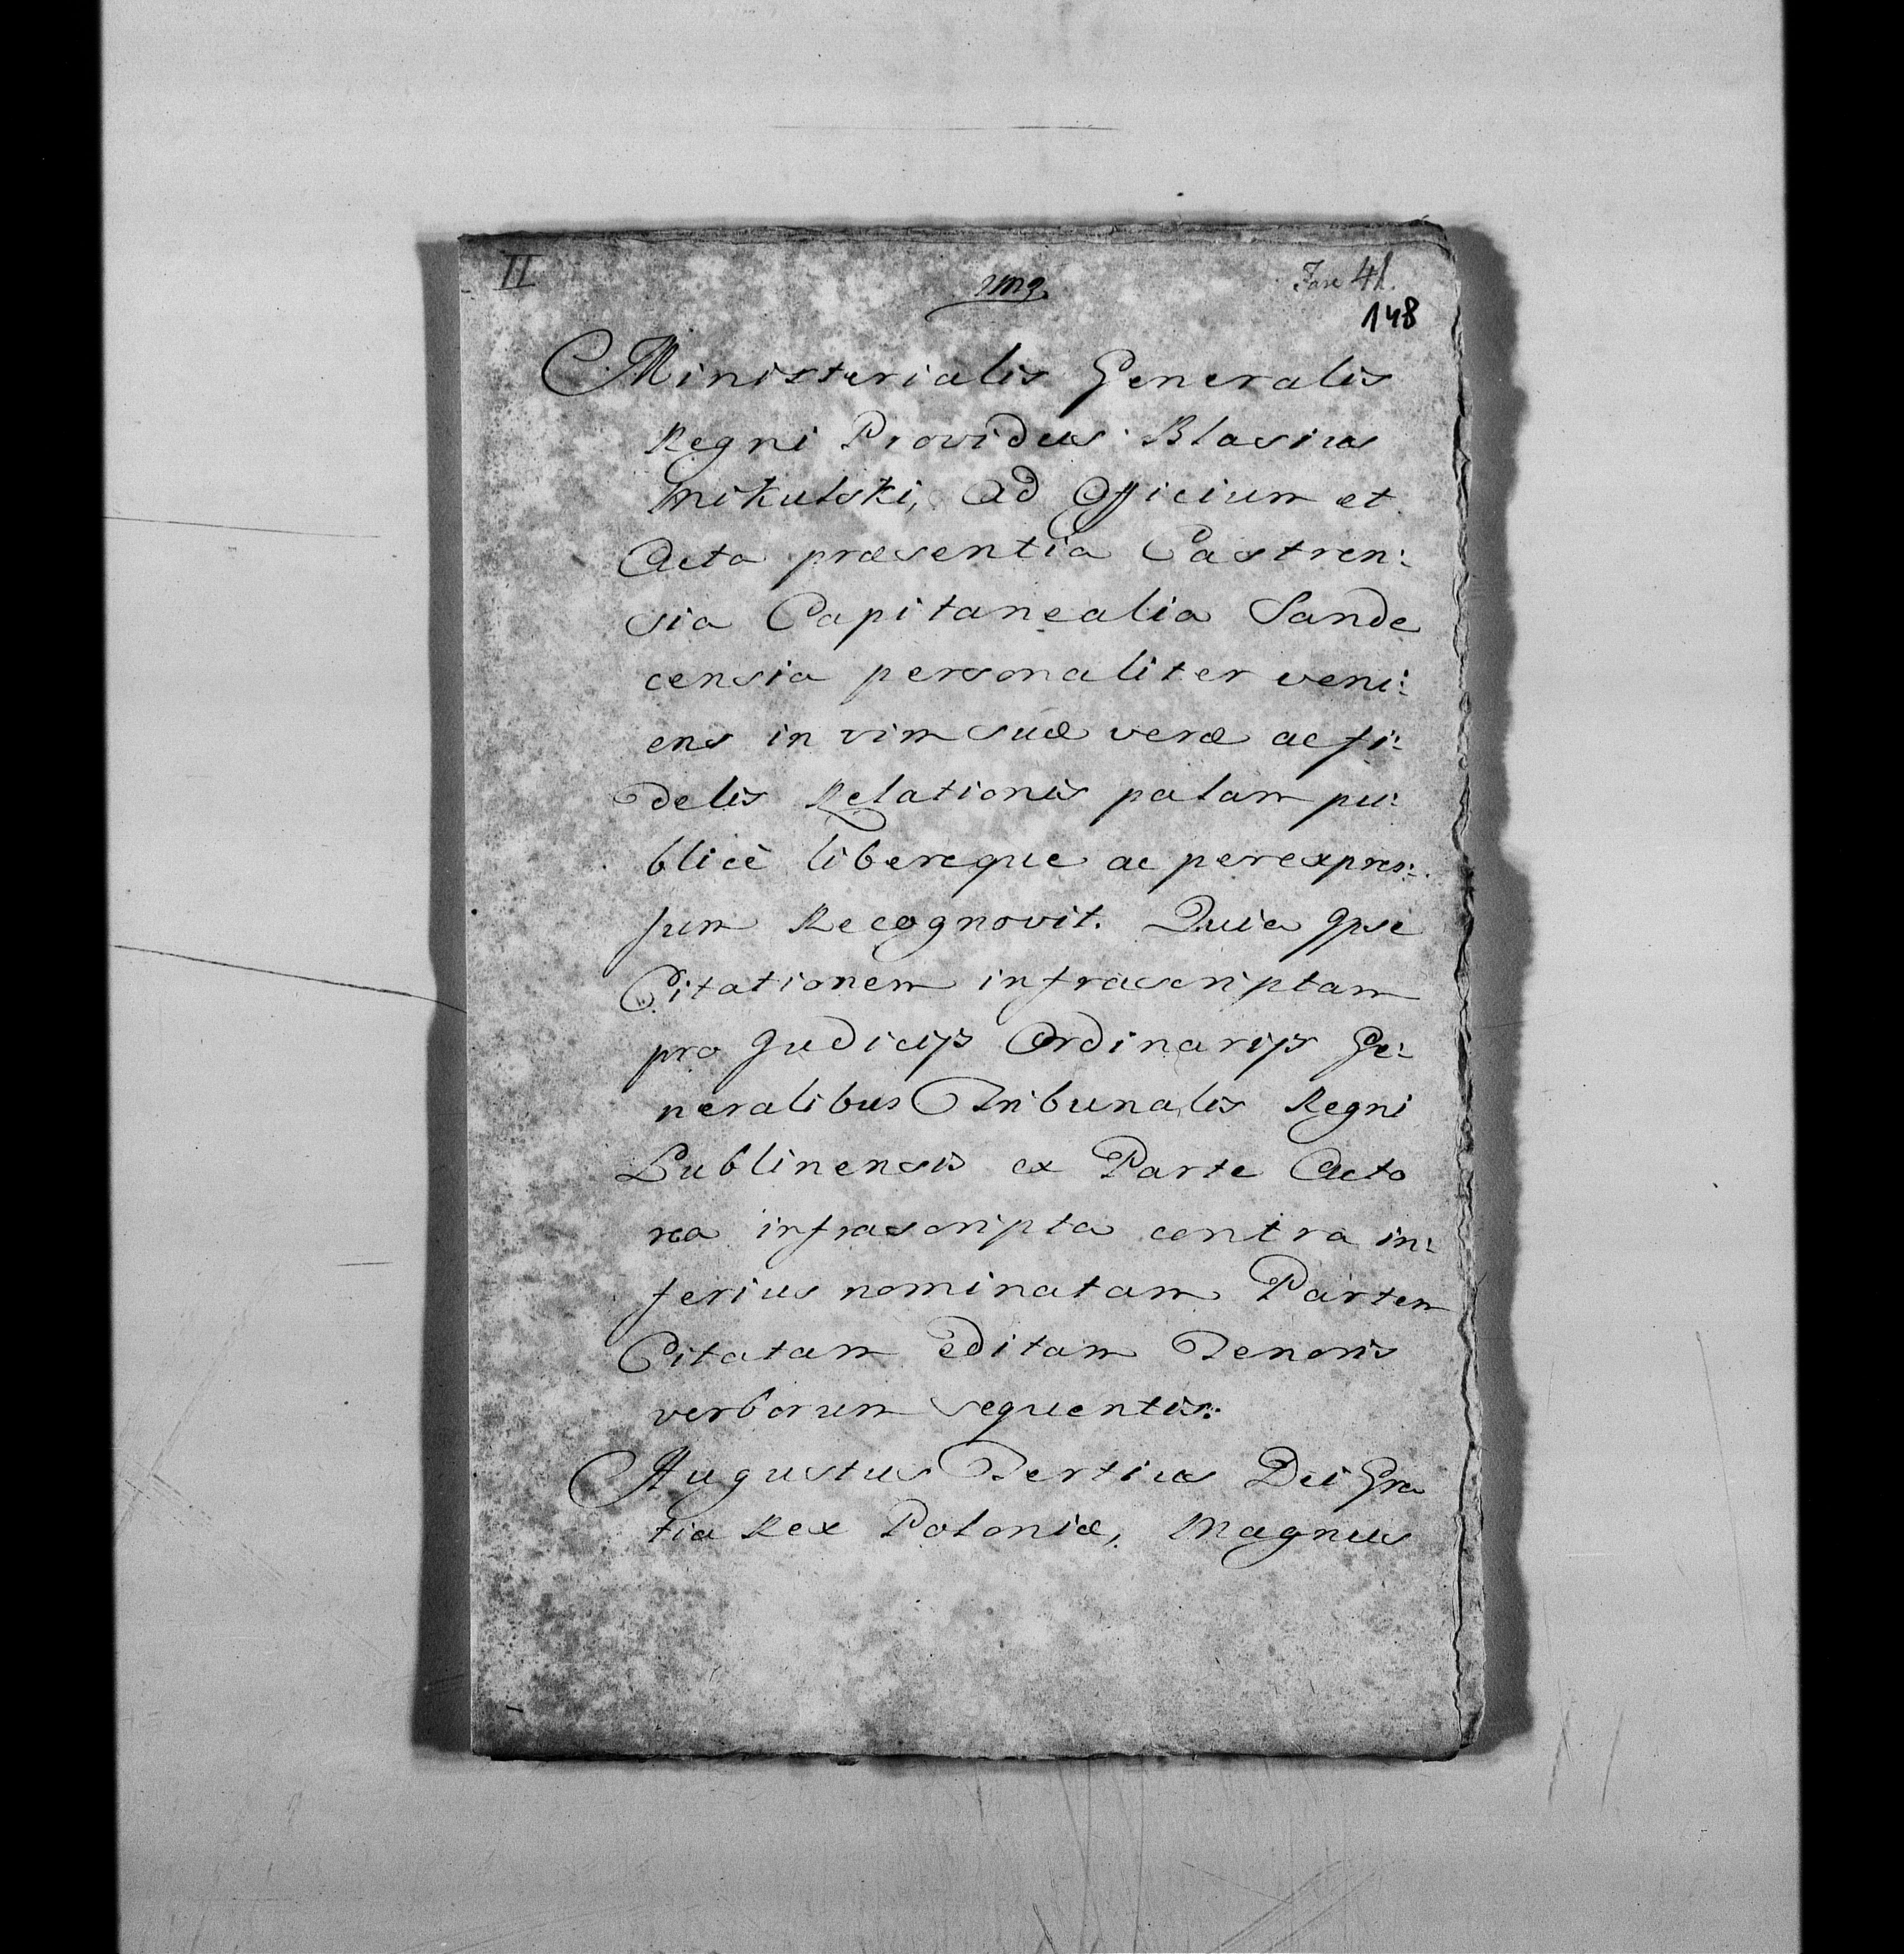 II
Fasc 41.
148
Ministerialis Generalis
Regni Providus Blasius
Mikulski, ad Officium et
Acta præsentia Castren:
sia Capitanealia Sande
censia personaliter veni:
ens in vim suæ veræ ac fi:
delis Relationis palam pu:
blicè libereque ac perexpres:
sum Recognovit. Quia Ipse
Citationem infrascriptam
pro Judicijs Ordinarijs Ge:
neralibus Tribunalis Regni
Lublinensis ex Parte Acto
rea infrascripta contra in:
ferius nominatam Partem
Citatam editam Tenoris
verborum sequentis:
Augustus Tertius Dei Gra
tia Rex Poloniæ, Magnus